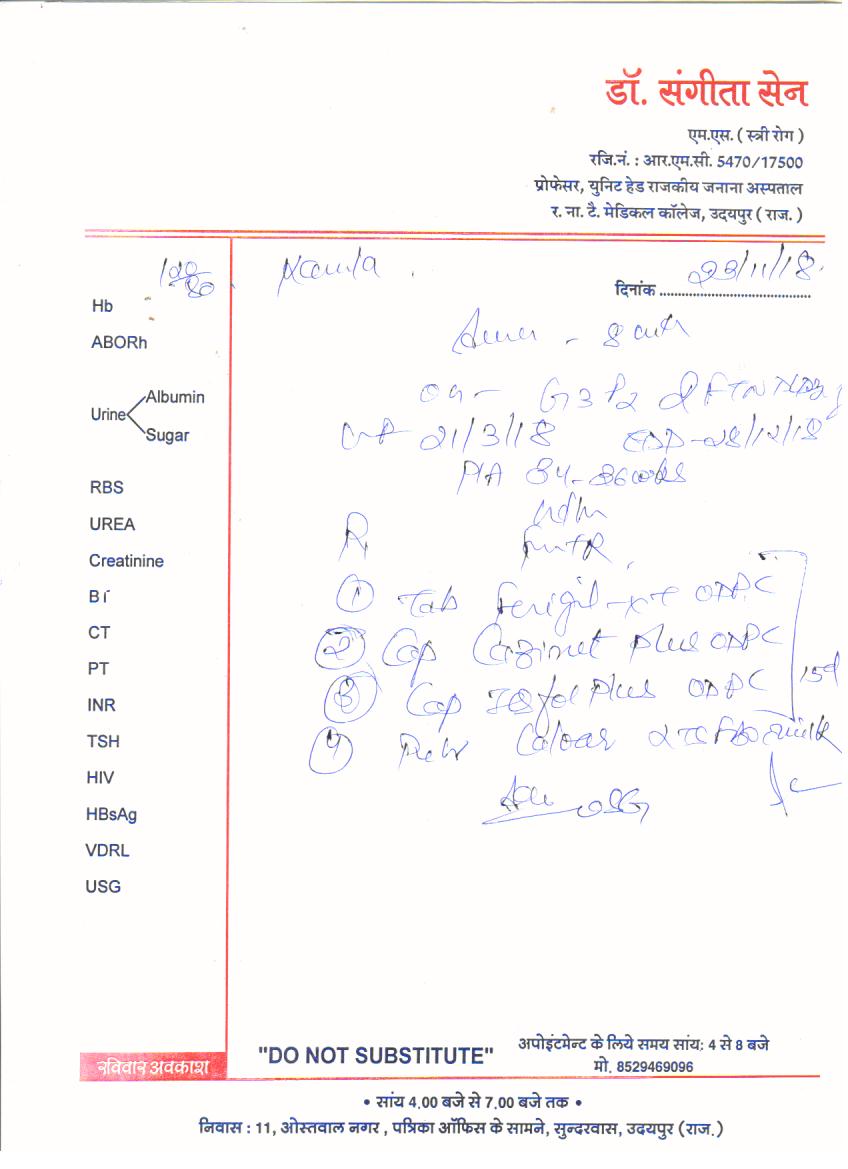 डॉ. संगीता सेन
एम.एस. ( स्त्री रोग )
रजि.नं. : आर.एम.सी. 5470/17500
प्रोफेसर, युनिट हेड राजकीय जनाना अस्पताल
र. ना. टै. मेडिकल कॉलेज, उदयपुर ( राज. )
120/80
Kamla
दिनांक 23/11/18
Hb
ABORh
Urine Albumin
Sugar
RBS
UREA
Creatinine
BT
CT
PT
INR
TSH
HIV
HBsAg
VDRL
USG
Amen - 8 mth
OH - G3P2
LMP 21/3/18 EDD - 28/12/18
P/A 34-36 wks
R
① Tab XT OD PC
② Cap Plus OD PC
③ Cap Plus OD PC
15d
④ milk
Adv USG
रविवार अवकाश
"DO NOT SUBSTITUTE"
अपोइंटमेन्ट के लिये समय सांय: 4 से 8 बजे
मो. 8529469096
• सांय 4.00 बजे से 7.00 बजे तक •
निवास : 11, ओस्तवाल नगर , पत्रिका ऑफिस के सामने, सुन्दरवास, उदयपुर (राज.)